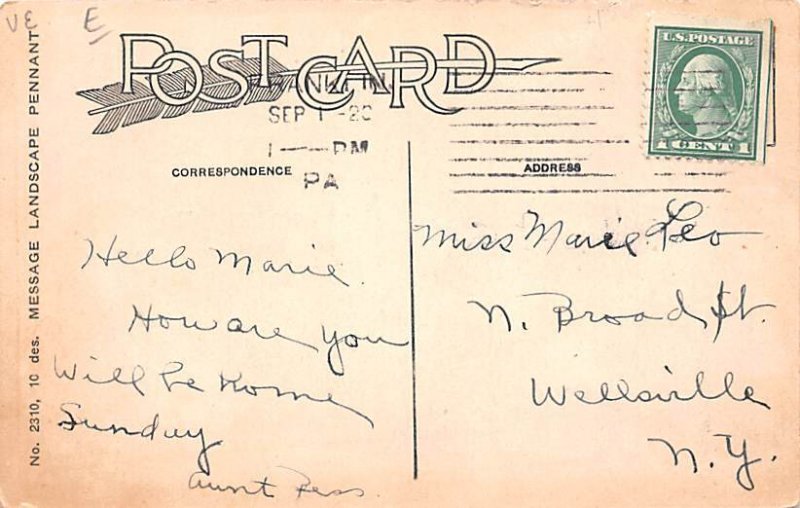 VE
E
POST CARD
FRANKLIN
SEP 1-20
1——PM
PA
U.S. POSTAGE
1 CENT 1
CORRESPONDENCE
ADDRESS
Hello Marie.
How are you
Will be home
Sunday
Aunt Bess.
Miss Marie Leo
N. Broad St.
Wellsville
N.Y.
No. 2310, 10 des. MESSAGE LANDSCAPE PENNANT